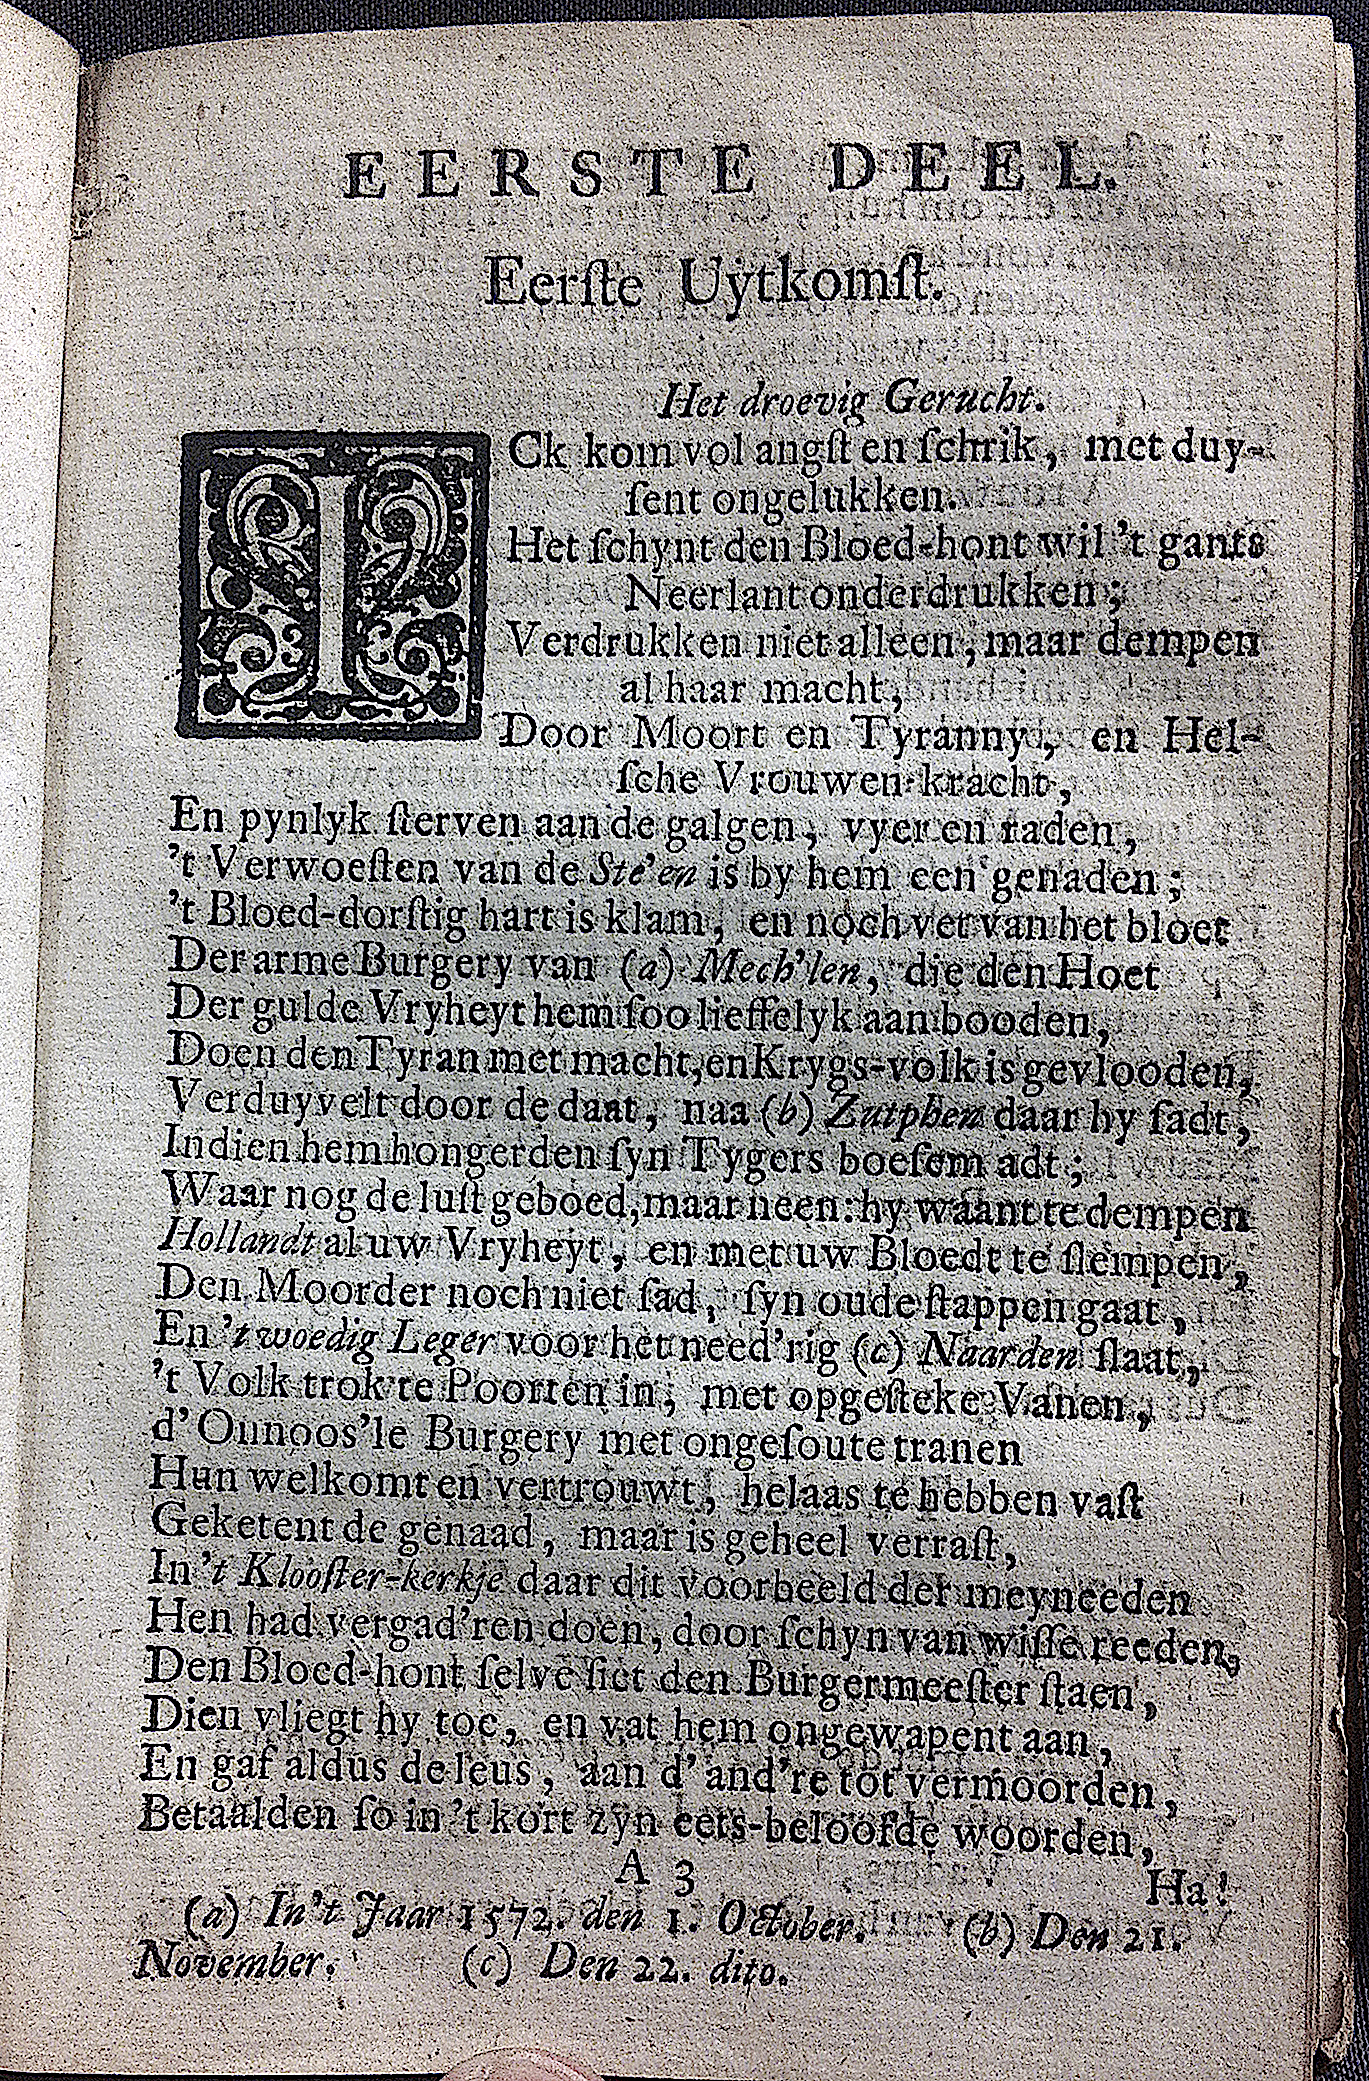 EERSTE DEEL.
Eerſte Uytkomſt.
Het droevig Gerucht.
ICk kom vol angſt en ſchrik, met duy-
ſent ongelukken.
Het ſchynt den Bloed-hont wil 't gants
Neerlant onderdrukken;
Verdrukken niet alleen, maar dempen
al haar macht,
Door Moort en Tyranny, en Hel-
ſche Vrouwen-kracht,
En pynlyk ſterven aan de galgen, vyer en raden,
't Verwoeſten van de Ste'en is by hem een genaden;
't Bloed-dorſtig hart is klam, en noch vet van het bloet
Der arme Burgery van (a) Mech'len, die den Hoet
Der gulde Vryheyt hem ſoo lieffelyk aanbooden,
Doen den Tyran met macht, en Krygs-volk is gevlooden,
Verduyvelt door de daat, naa (b) Zutphen daar hy ſadt,
Indien hem hongerden ſyn Tygers boeſem adt;
Waar nog de luſt geboed, maar neen: hy waant te dempen
Hollandt al uw Vryheyt, en met uw Bloedt te ſlempen,
Den Moorder noch niet ſad, ſyn oude ſtappen gaat,
En 't woedig Leger voor het need'rig (c) Naarden ſlaat,
't Volk trok te Poorten in, met opgeſteke Vanen,
d' Onnoos'le Burgery met ongeſoute tranen
Hun welkomt en vertrouwt, helaas te hebben vaſt
Geketent de genaad, maar is geheel verraſt,
In 't Klooſter-kerkje daar dit voorbeeld der meyneeden
Hen had vergad'ren doen, door ſchyn van wiſſe reeden,
Den Bloed-hont ſelve ſiet den Burgermeeſter ſtaen,
Dien vliegt hy toe, en vat hem ongewapent aan,
En gaf aldus de leus, aan d' and're tot vermoorden,
Betaalden ſo in 't kort zyn eets-beloofde woorden,
A 3
Ha!
(a) In 't Jaar 1572. den 1. October. (b) Den 21.
November. (c) Den 22. dito.